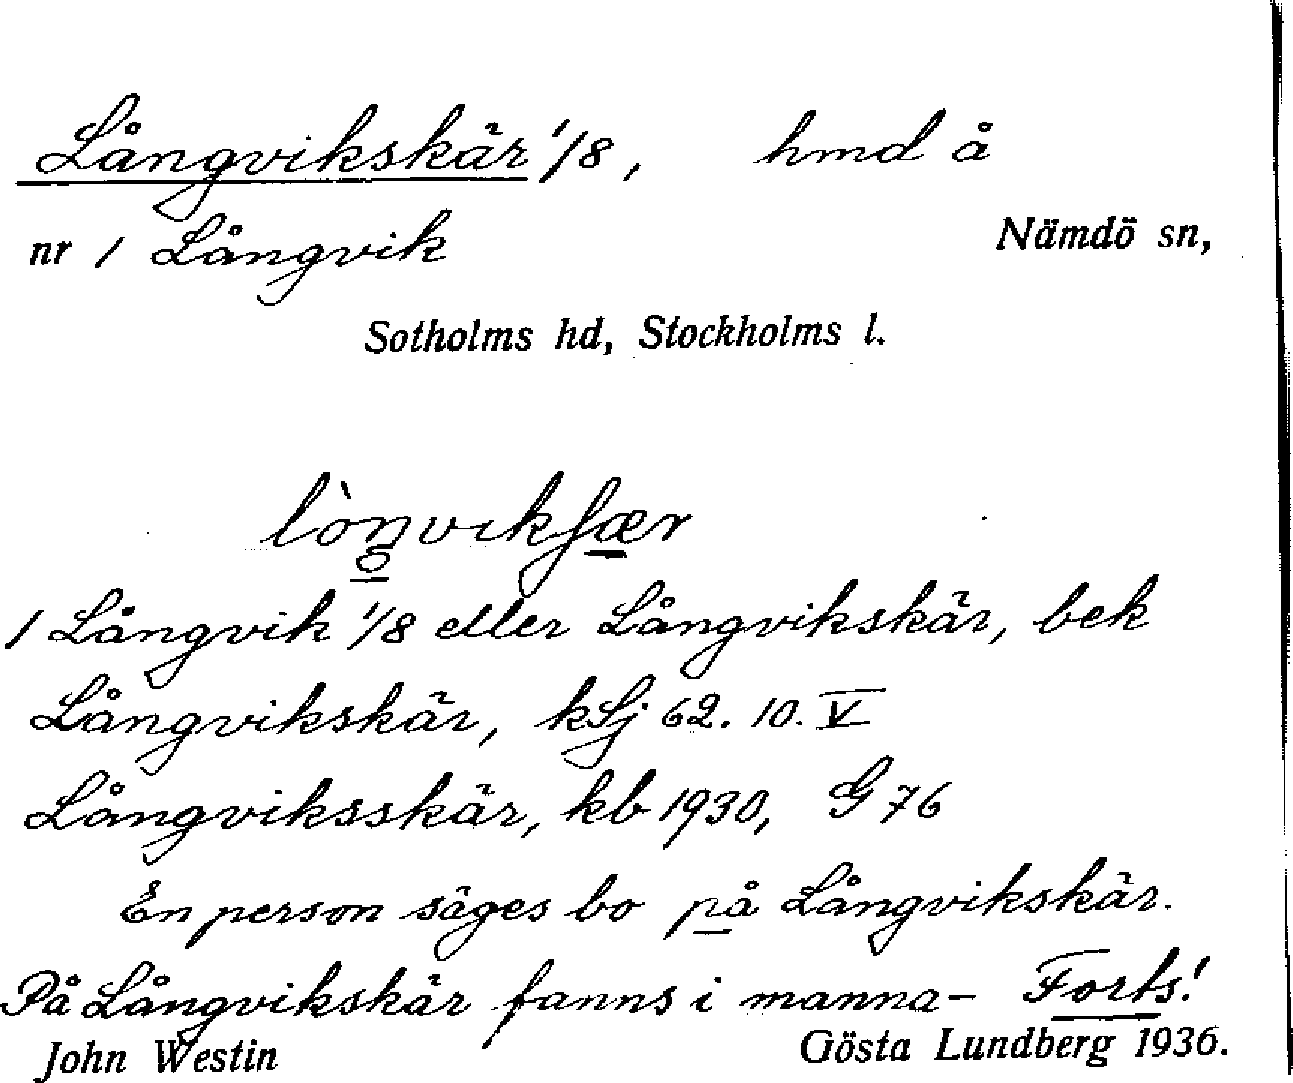 Långvikskär 1/8, hmd å
nr 1 Långvik Nämdö sn,
Sotholms hd, Stockholms l.
1 Långvik 1/8 eller Långvikskär, bek
Långvikskär, kSj 62. 10. V
Långviksskär, kb 1930, G 76
En person säges bo på Långvikskär.
På Långvikskär fanns i manna- Forts!
John Westin Gösta Lundberg 1936.